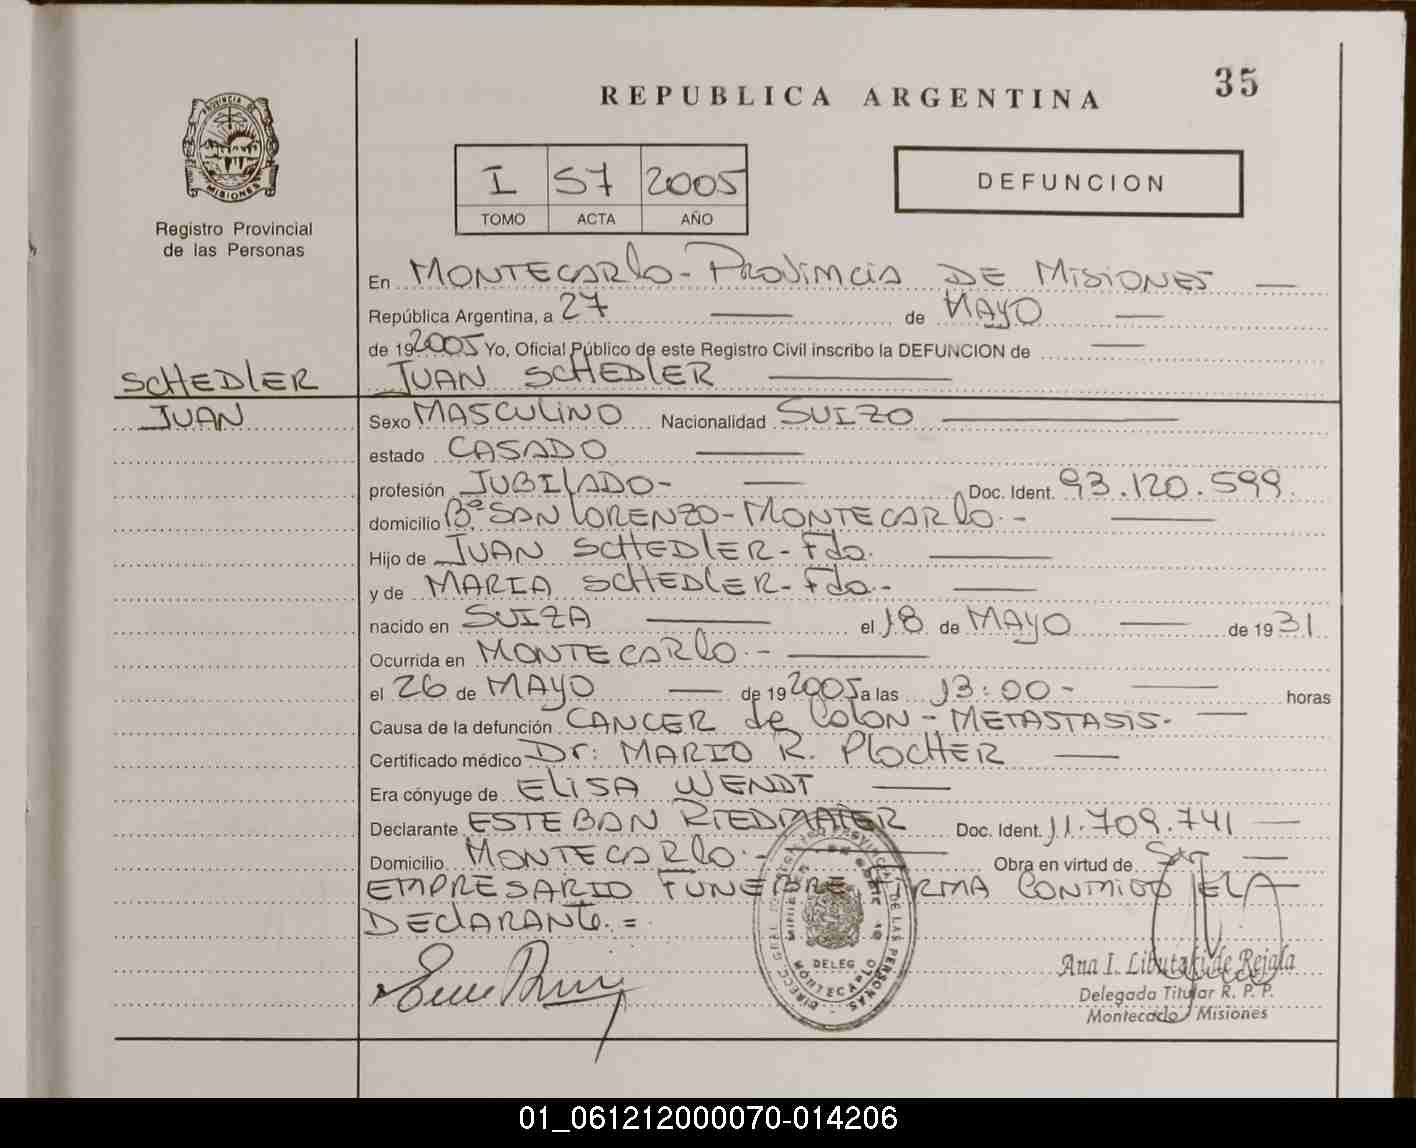 35
REPUBLICA ARGENTINA
PROVINCIA DE
MISIONES
Registro Provincial
de las Personas
I 57 2005
TOMO ACTA AÑO
DEFUNCION
En MONTECARLO - PROVINCIA DE MISIONES
República Argentina, a 27 de MAYO
de 19 2005 Yo, Oficial Público de este Registro Civil inscribo la DEFUNCION de
SCHEDLER
JUAN
JUAN SCHEDLER
Sexo MASCULINO Nacionalidad SUIZO
estado CASADO
profesión JUBILADO- Doc. Ident. 93.120.599.
domicilio Bº SAN LORENZO - MONTECARLO.-
Hijo de JUAN SCHEDLER - Fdo.
y de MARIA SCHEDLER - Fda.-
nacido en SUIZA el 18 de MAYO de 1931
Ocurrida en MONTECARLO.-
el 26 de MAYO de 19 2005 a las 13:00- horas
Causa de la defunción CANCER de COLON - METASTASIS.
Certificado médico Dr: MARIO R. PLOCHER
Era cónyuge de ELISA WENDT
Declarante ESTEBAN RIEDMAIER Doc. Ident. 11.709.741
Domicilio MONTECARLO.- Obra en virtud de
EMPRESARIO FUNEBRE FIRMA CONMIGO
DECLARANTE.=
DELEG
MONTECARLO
DE LAS PERSONAS
Ana I. de Rejala
Delegada Titular R. P. P.
Montecarlo Misiones
01_061212000070-014206